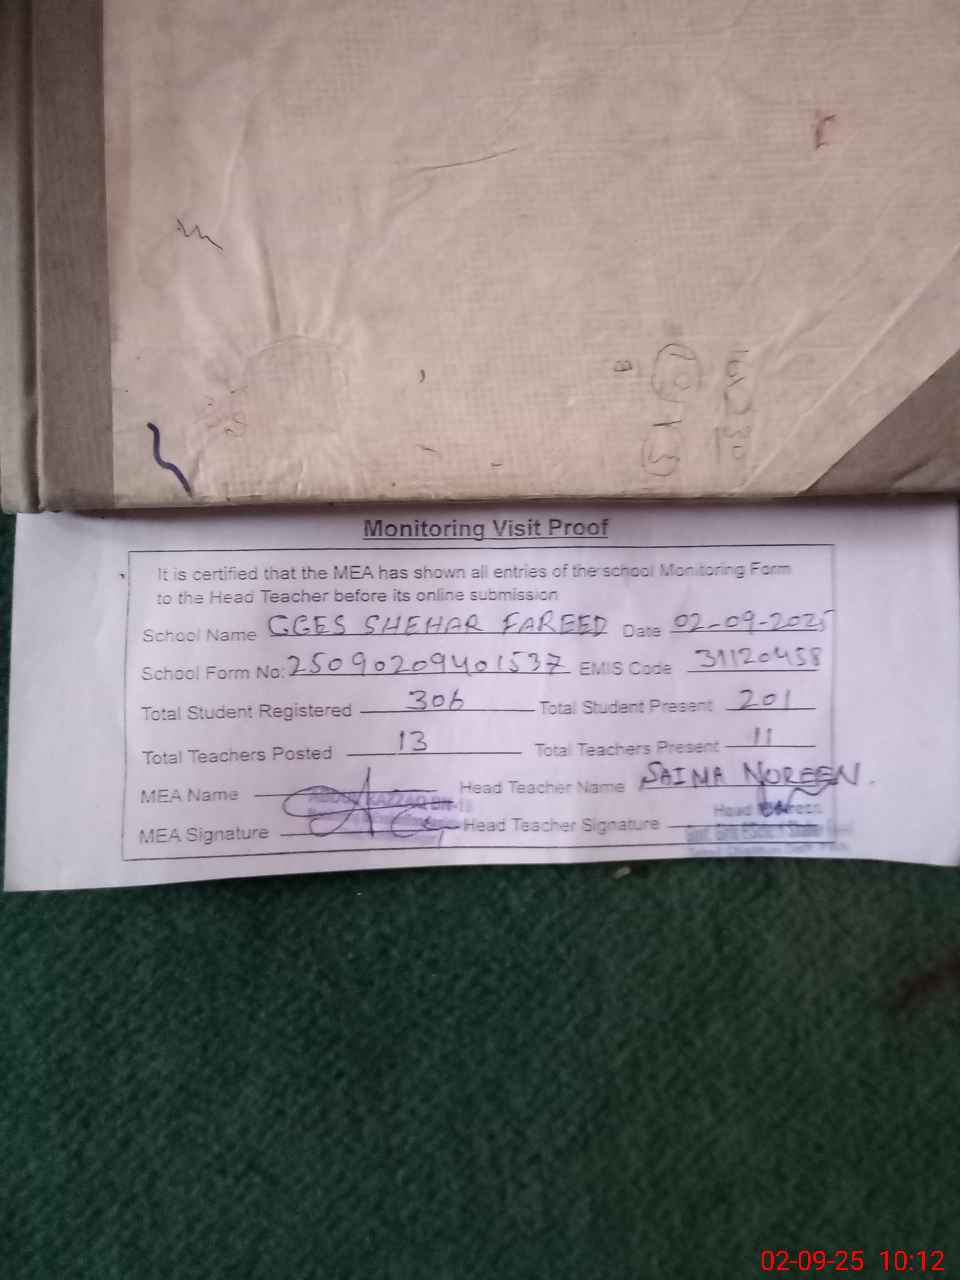 Monitoring Visit Proof
It is certified that the MEA has shown all entries of the school Monitoring Form
to the Head Teacher before its online submission
School Name GGES SHEHAR FAREED Date 02-09-2025
School Form No: 25090209401537 EMIS Code 31120458
Total Student Registered 306 Total Student Present 201
Total Teachers Posted 13 Total Teachers Present 11
MEA Name ABDUL RAZZAQ Head Teacher Name SAIMA NOREEN.
MEA Signature Head Teacher Signature
Head
02-09-25 10:12